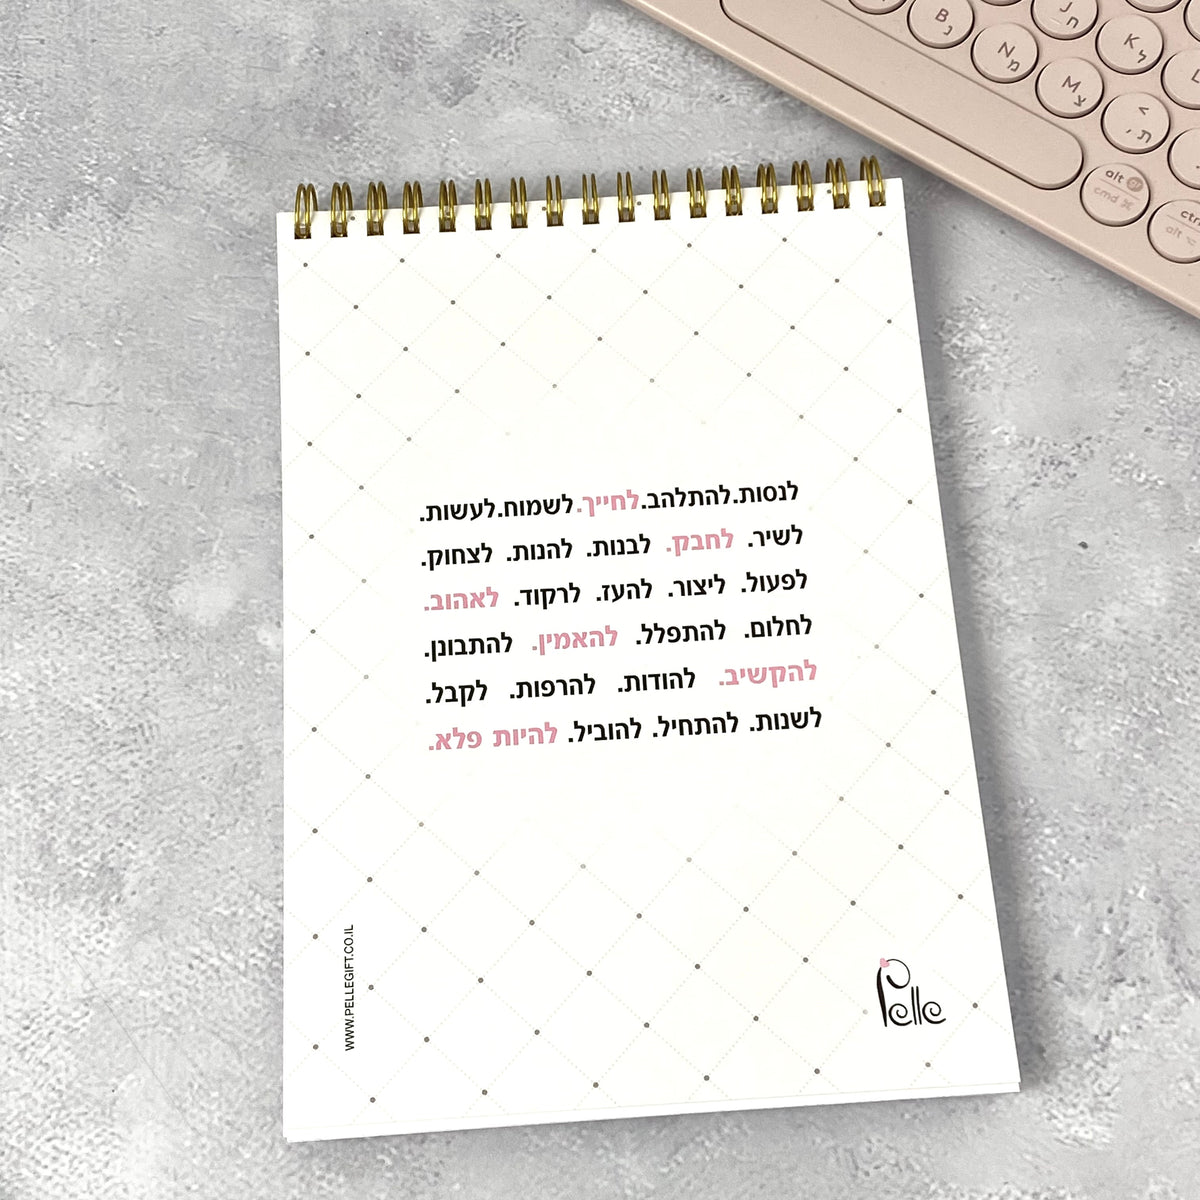 לנסות.להתלהב.לחייך.לשמוח.לעשות.
לשיר. לחבק. לבנות. להנות. לצחוק.
לפעול. ליצור. להעז. לרקוד. לאהוב.
לחלום. להתפלל. להאמין. להתבונן.
להקשיב. להודות. להרפות. לקבל.
לשנות. להתחיל. להוביל. להיות פלא.
WWW.PELLEGIFT.CO.IL
Pelle
B נ
N מ
ח
K ל
M צ
> ת ,
L
alt gr
cmd ⌘
ctrl
alt